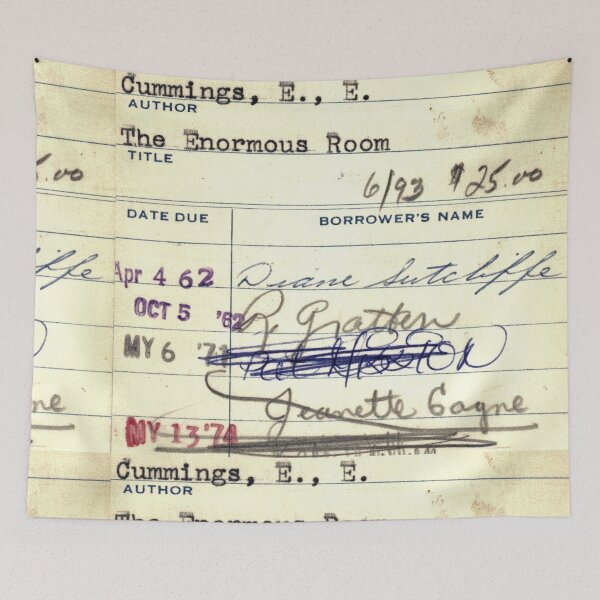 Cummings, E., E.
AUTHOR
The Enormous Room
TITLE
.00 6/93 $25.00
DATE DUE BORROWER'S NAME
iffe Apr 4 62 Diane Sutcliffe
OCT 5 '62 R. Gratten
MY 6 '71
ne Jeanette Gagne
MY 13 '74
Cummings, E., E.
AUTHOR
The Enormous Room